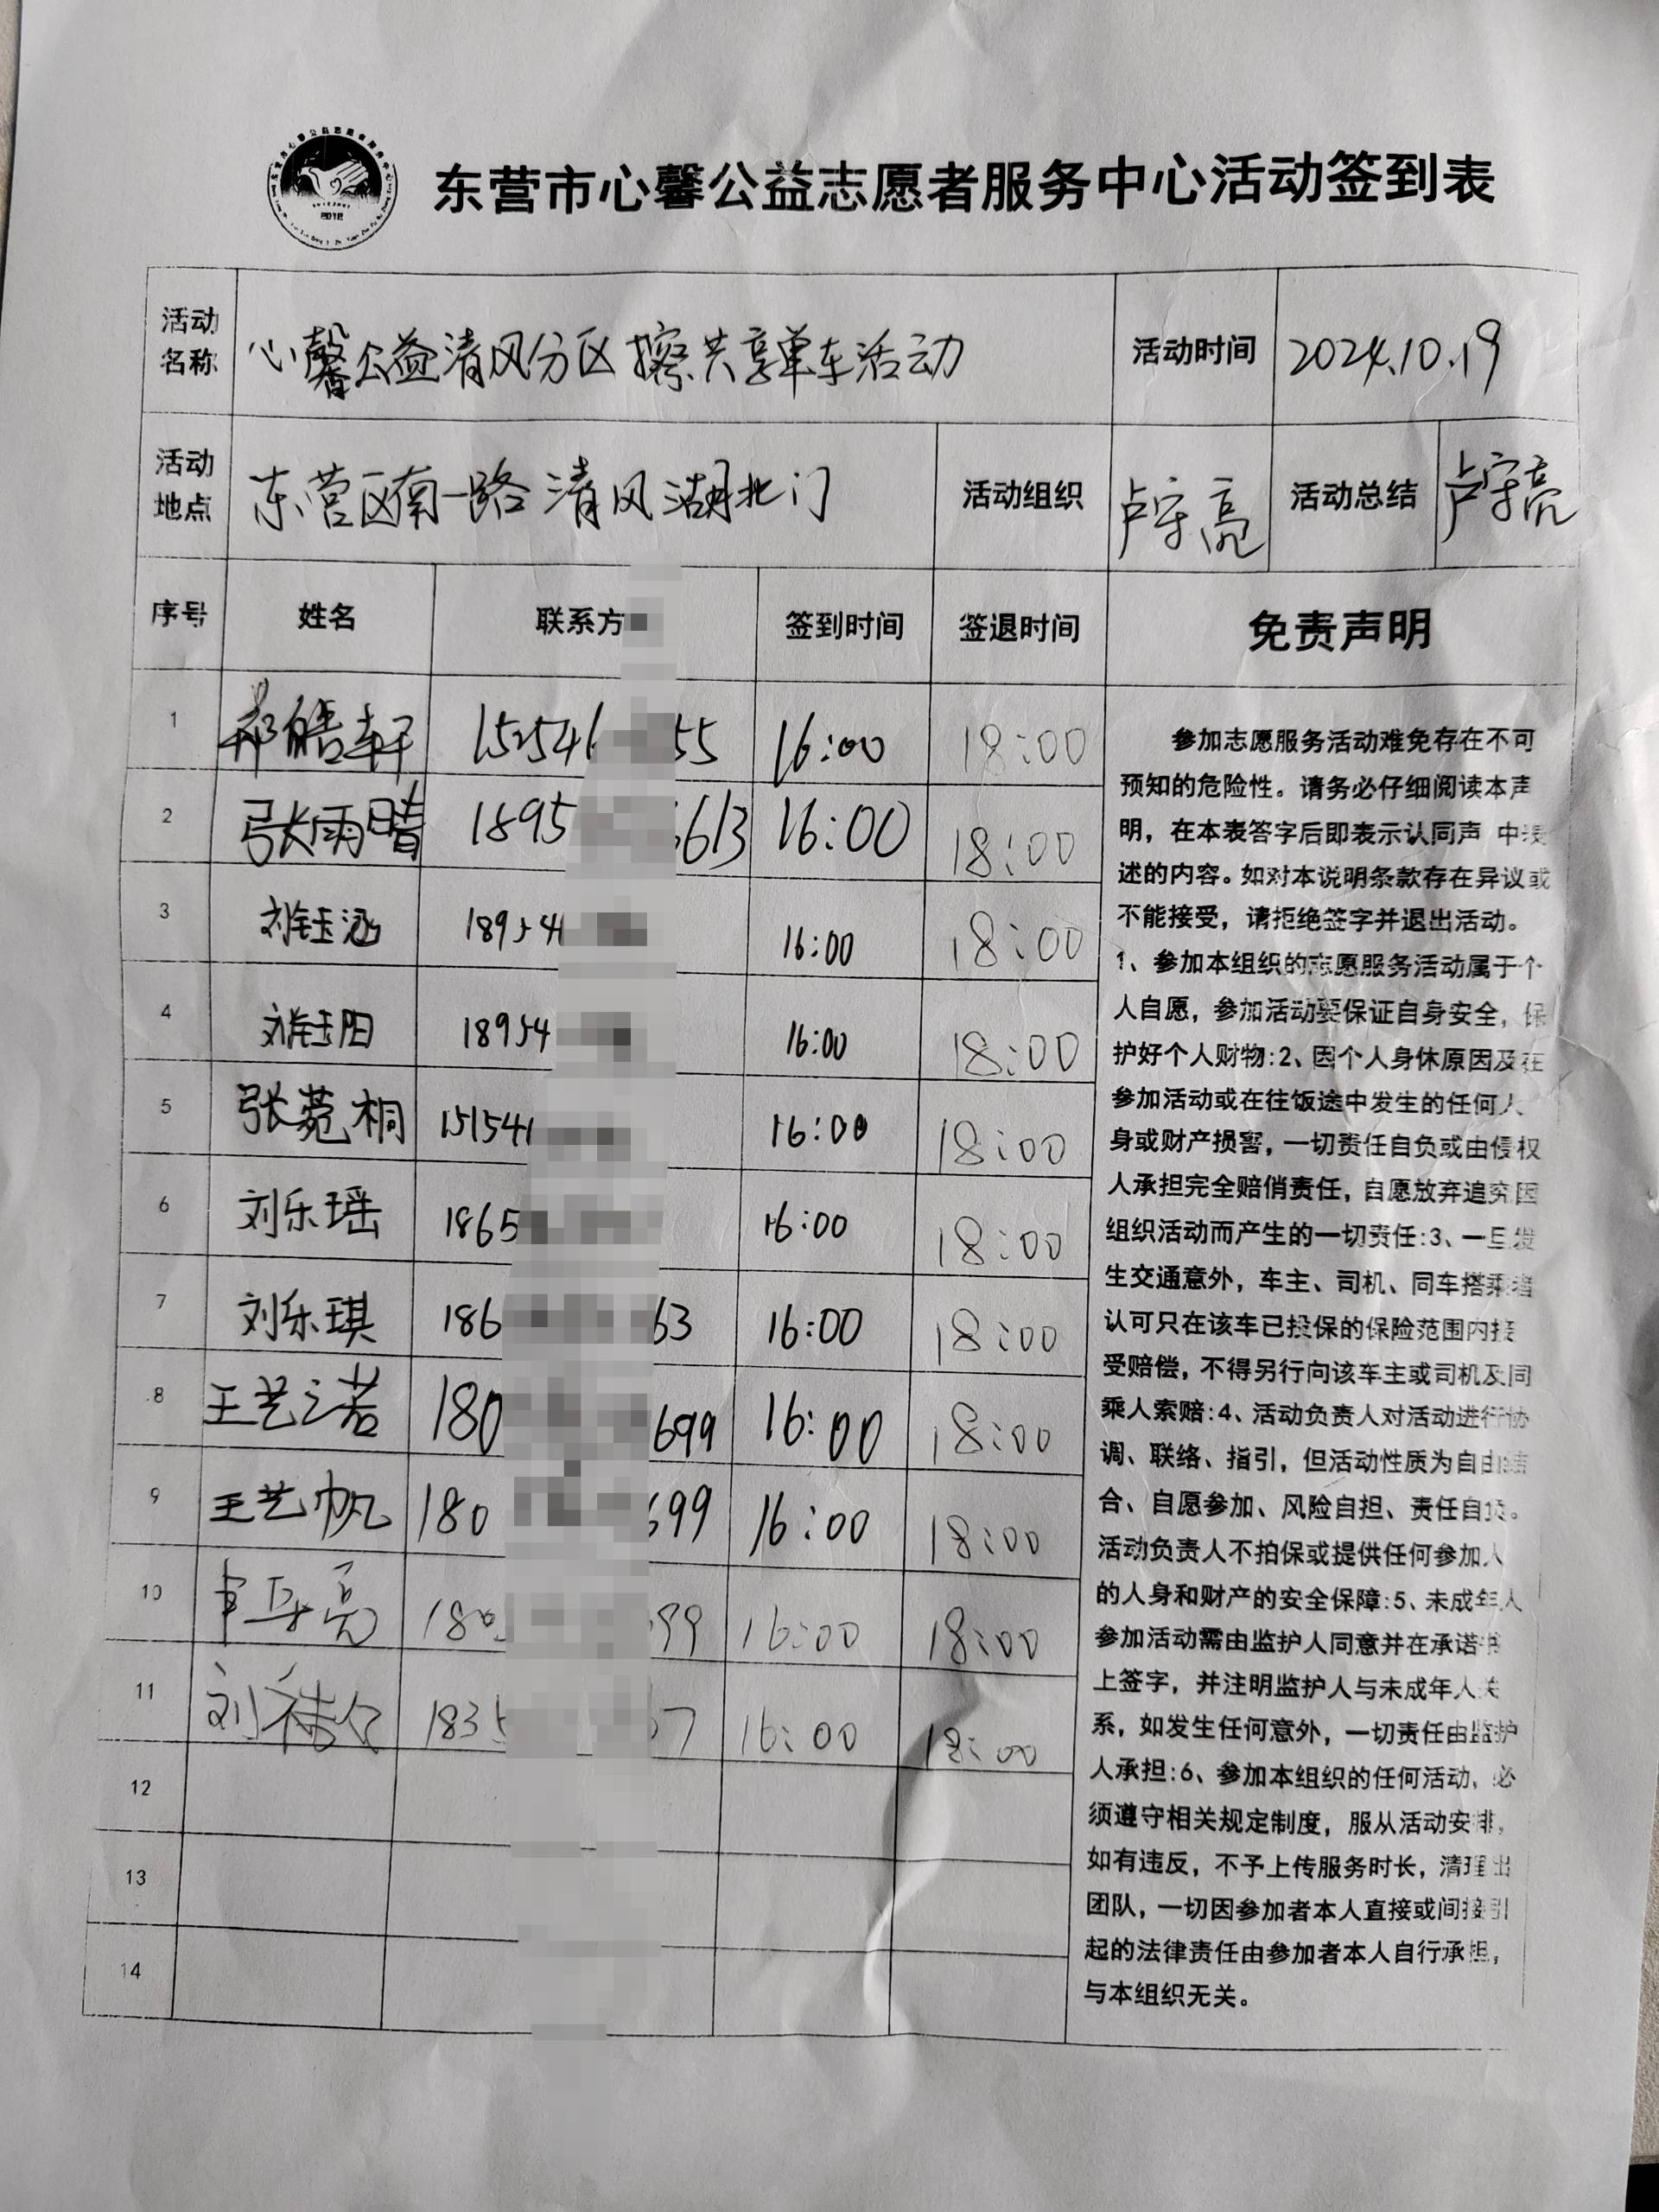 东营市心馨公益志愿者服务中心活动签到表
2012
活动名称 心馨公益清风分区擦共享单车活动 活动时间 2024.10.19
活动地点 东营区南一路清风湖北门 活动组织 卢宇亮 活动总结 卢宇亮
序号 姓名 联系方 签到时间 签退时间 免责声明
1 郝皓轩 15254 55 16:00 18:00
2 张雨晴 1895 6613 16:00 18:00
3 刘钰涵 18954 16:00 18:00
4 刘钰阳 18954 16:00 18:00
5 张菀桐 151541 16:00 18:00
6 刘乐瑶 1865 16:00 18:00
7 刘乐琪 186 63 16:00 18:00
8 王艺之若 180 699 16:00 18:00
9 王艺帆 180 699 16:00 18:00
10 180 99 16:00 18:00
11 刘 1835 7 16:00 18:00
12
13
14
参加志愿服务活动难免存在不可
预知的危险性。请务必仔细阅读本声
明，在本表答字后即表示认同声 中表
述的内容。如对本说明条款存在异议或
不能接受，请拒绝签字并退出活动。
1、参加本组织的志愿服务活动属于个
人自愿，参加活动要保证自身安全，保
护好个人财物:2、因个人身休原因及在
参加活动或在往饭途中发生的任何人
身或财产损害，一切责任自负或由侵权
人承担完全赔俏责任，自愿放弃追究因
组织活动而产生的一切责任:3、一旦发
生交通意外，车主、司机、同车搭乘者
认可只在该车已投保的保险范围内接
受赔偿，不得另行向该车主或司机及同
乘人索赔:4、活动负责人对活动进行协
调、联络、指引，但活动性质为自由结
合、自愿参加、风险自担、责任自负。
活动负责人不拍保或提供任何参加人
的人身和财产的安全保障:5、未成年人
参加活动需由监护人同意并在承诺书
上签字，并注明监护人与未成年人关
系，如发生任何意外，一切责任由监护
人承担:6、参加本组织的任何活动，必
须遵守相关规定制度，服从活动安排，
如有违反，不予上传服务时长，清理出
团队，一切因参加者本人直接或间接引
起的法律责任由参加者本人自行承担，
与本组织无关。